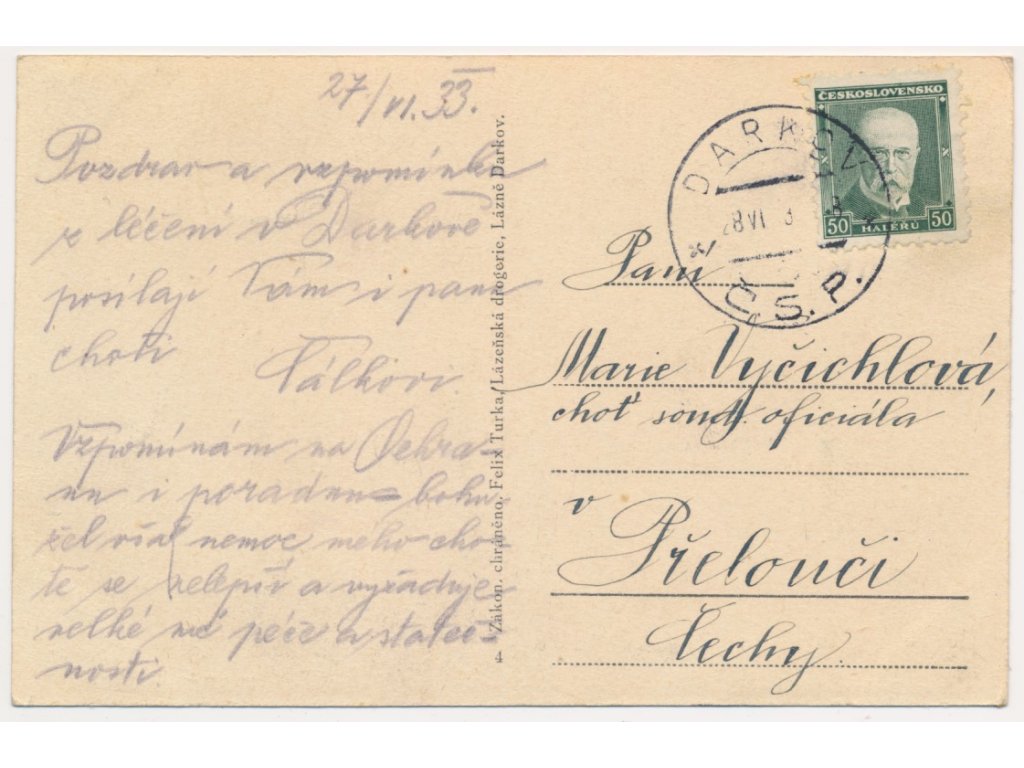 27/VI. 33.
Pozdrav a vzpomínku
z léčení v Darkově
posílají Vám i pani
choti Válkovi.
Vzpomínám na
i bohu-
žel však nemoc mého cho-
tě se zelepší a vyžaduje
velké mé péče a stateč-
nosti.
4 Zákon. chráněno, Felix Turka, Lázeňská drogerie, Lázně Darkov.
ČESKOSLOVENSKO
50 HALÉŘŮ 50
DARKOV
28 VI 3
Č.S.P.
Paní
Marie Vyčichlová,
choť soud. oficiála
v
Přelouči
Čechy.